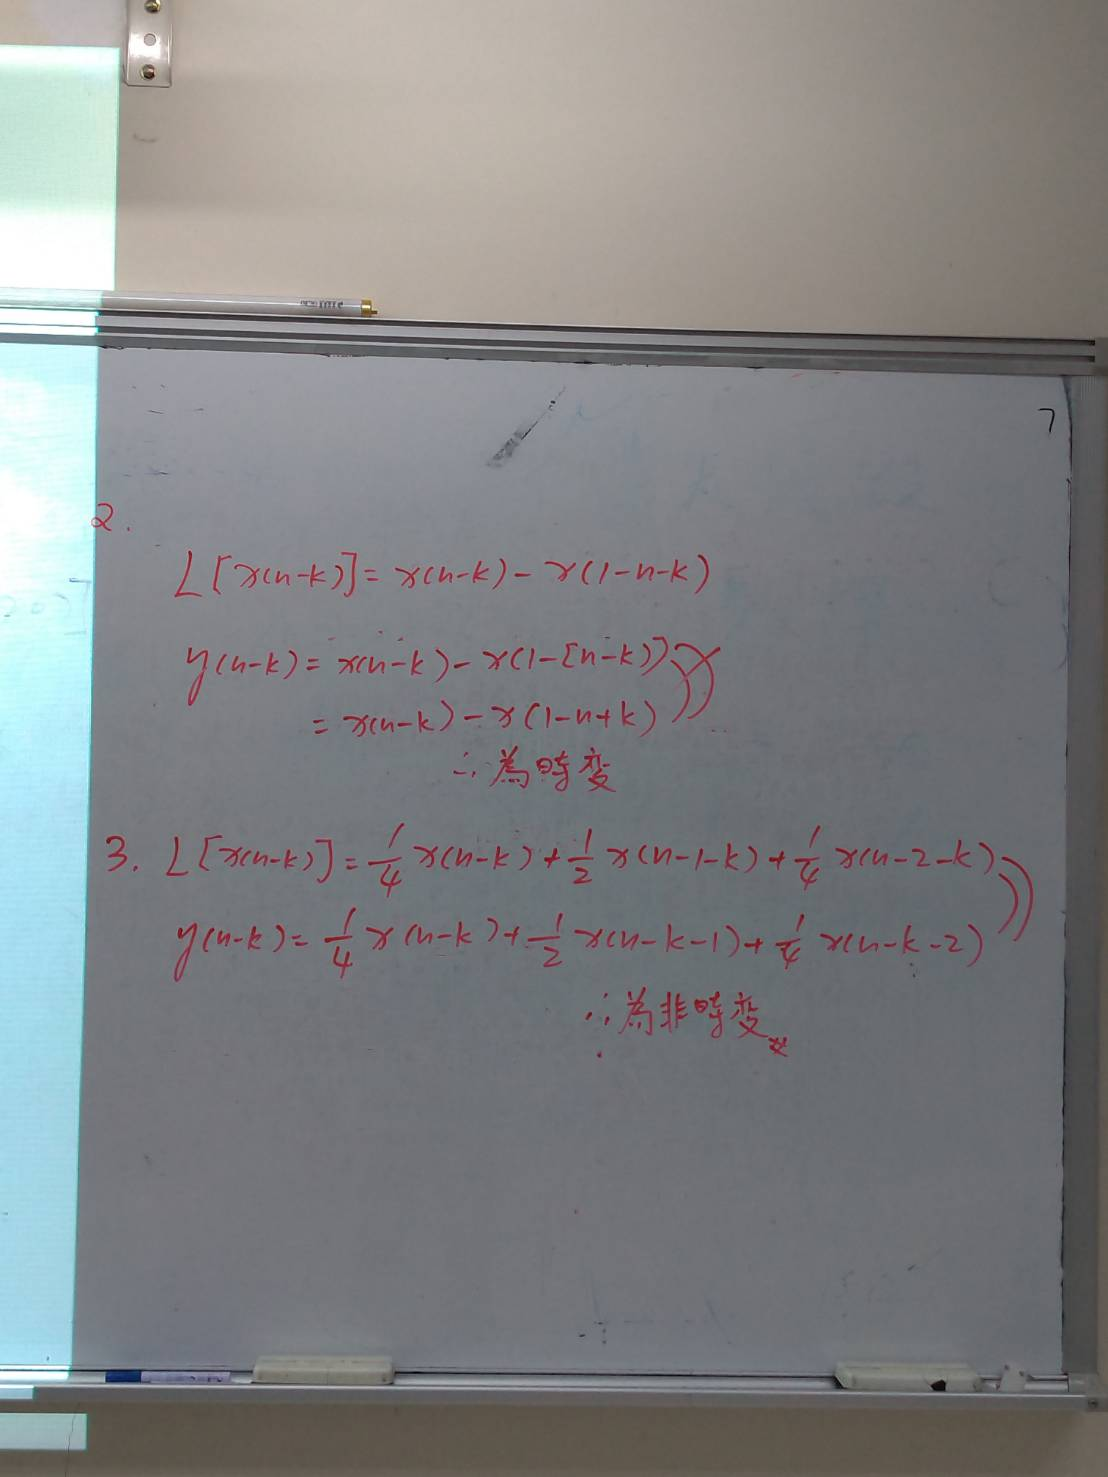 7
2.
L[x(n-k)]= x(n-k)- x(1-n-k)
y(n-k)= x(n-k)- x(1-[n-k])
= x(n-k)- x(1-n+k)
∴為時变
3. L[x(n-k)]= 1/4 x(n-k)+ 1/2 x(n-1-k)+ 1/4 x(n-2-k)
y(n-k)= 1/4 x(n-k)+ 1/2 x(n-k-1)+ 1/4 x(n-k-2)
∴為非時变